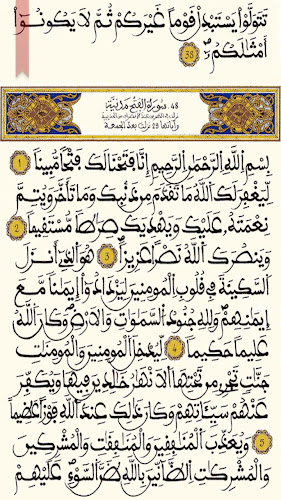 تَتَوَلَّوْاْ يَسْتَبْدِلْ قَوْماً غَيْرَكُمْ ثُمَّ لَا يَكُونُوٓاْ
أَمْثَٰلَكُمۖ 38
48. سورة الفتح مدنية
وآياتها 29 نزلت بعد الجمعة
بِسْمِ اِللَّهِ اِلرَّحْمَٰنِ اِلرَّحِيمِ إِنَّا فَتَحْنَا لَكَ فَتْحاً مُّبِيناً 1
لِّيَغْفِرَ لَكَ اَللَّهُ مَا تَقَدَّمَ مِن ذَنۢبِكَ وَمَا تَأَخَّرَ وَيُتِمَّ
نِعْمَتَهُۥ عَلَيْكَ وَيَهْدِيَكَ صِرَٰطاً مُّسْتَقِيماً 2
وَيَنصُرَكَ اَللَّهُ نَصْراً عَزِيزاً 3 هُوَ اَلذِےٓ أَنزَلَ
اَلسَّكِينَةَ فِے قُلُوبِ اِلْمُومِنِينَ لِيَزْدَادُوٓاْ إِيمَٰناً مَّعَ
إِيمَٰنِهِمْ وَلِلهِ جُنُودُ اُلسَّمَٰوَٰتِ وَالَارْضِ وَكَانَ اَللَّهُ
عَلِيماً حَكِيماً 4 لِّيُدْخِلَ اَلْمُومِنِينَ وَالْمُومِنَٰتِ
جَنَّٰتٍ تَجْرِے مِن تَحْتِهَا اَلَانْهَٰرُ خَٰلِدِينَ فِيهَا وَيُكَفِّرَ
عَنْهُمْ سَيِّـَٔاتِهِمْ وَكَانَ ذَٰلِكَ عِندَ اَللَّهِ فَوْزاً عَظِيماً
5 وَيُعَذِّبَ اَلْمُنَٰفِقِينَ وَالْمُنَٰفِقَٰتِ وَالْمُشْرِكِينَ
وَالْمُشْرِكَٰتِ اِلظَّآنِّينَ بِاللَّهِ ظَنَّ اَلسَّوْءِ عَلَيْهِمْ